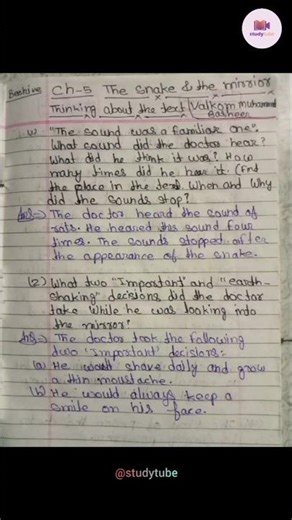 studytube
Beehive
Ch-5 The Snake & the mirror
Thinking about the text (Vaikom Muhammad
Basheer)
"The sound was a familiar one".
What sound did the doctor hear?
What did he think it was? How
many times did he hear it. (Find
the place in the text. When and Why
did the sounds stop?
Ans:- The doctor heard the sound of
rats. He heared this sound four
times. The sounds stopped after
the appearance of the snake.
(2) What two "Important" and "earth-
shaking" decisions did the doctor
take while he was looking into
the mirror?
Ans:- The doctor took the following
two 'important' decisions:
(a) He would shave daily and grow
a thin moustache.
(b) He would always keep a
smile on his face.
@studytube